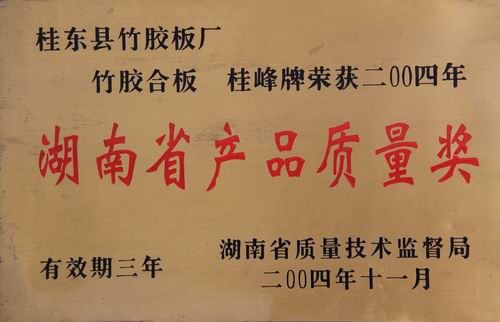 桂东县竹胶板厂
竹胶合板 桂峰牌荣获二00四年
湖南省产品质量奖
有效期三年
湖南省质量技术监督局
二00四年十一月